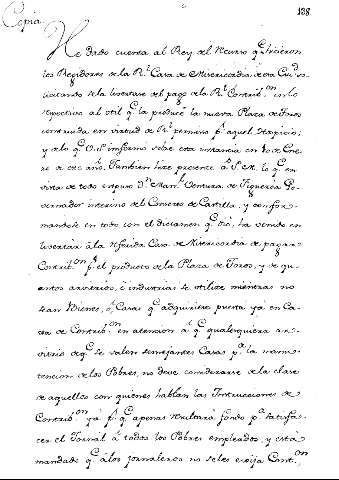 Copia
128.
He dado cuenta al Rey del recurso q.e hicieron
los Regidores de la R.l Casa de Misericordia de esa Ciu.d so
licitando se la libertase del pago de la R.l Contribu.on en lo
respectivo al util q.e la produce la nueva Plaza de Toros
construida en virtud de R.l permiso p.a aquel Hospicio;
y de lo q.e V.S. informó sobre esta instancia en 10 de Ene
ro de ese año. Tambien hize presente á S.M. lo q.e en
vista de todo expuso D.n Man.l Ventura de Figueroa Go
vernador interino del Consejo de Castilla, y confor
mandose en todo con el dictamen q.e dió, ha venido en
libertar á la referida Casa de Misericordia de pagar
Contrib.on p.r el producto de la Plaza de Toros, y de qu
entos arvitrios, é industrias se utilize mientras no
sean Bienes, ó Casas q.e adquiriere puesta yá en Ca
sa de Contrib.on en atencion á q.e qualesquiera ar
vitrio de q.e se valen semejantes Casas p.a la manu
tencion de los Pobres, no deve considerarse de la clase
de aquellos con quienes hablan las Instrucciones de
Contrib.on yá p.r q.e apenas resultará fondo p.a satisfa
cer el Jornal á todos los Pobres empleados, y está
mandado q.e á los jornaleros no se les exija Cont.on